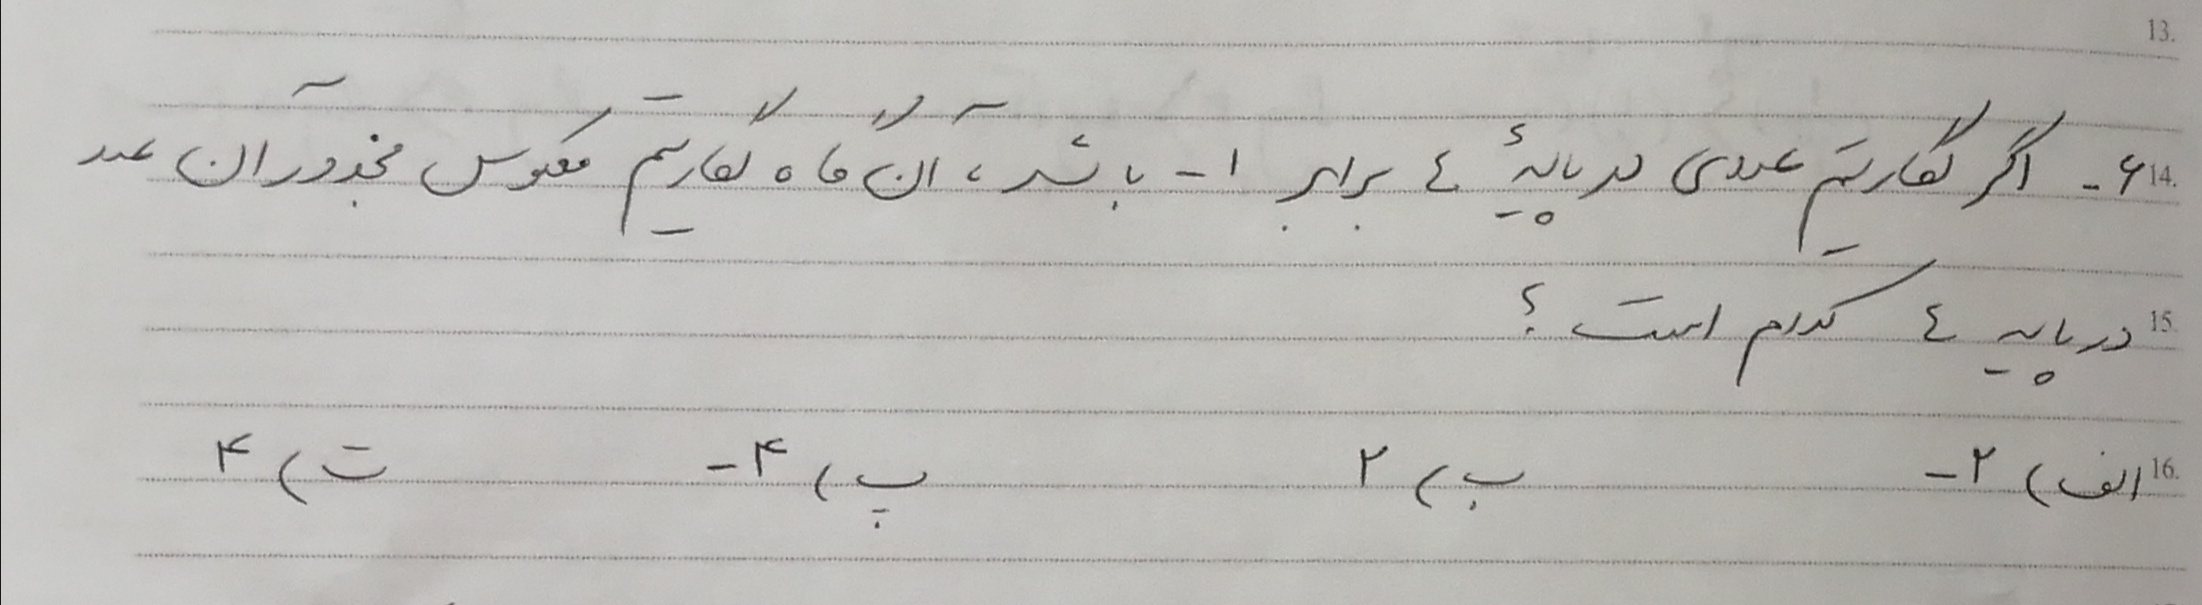 13.
14. ۶- اگر لگاریتم عددی در پایهٔ ٤ برابر ۱- باشد، آن گاه لگاریتم معکوس مجذور آن عدد
15. در پایه ٤ کدام است؟
16. الف) ۲- ب) ۲ پ) ۴- ت) ۴